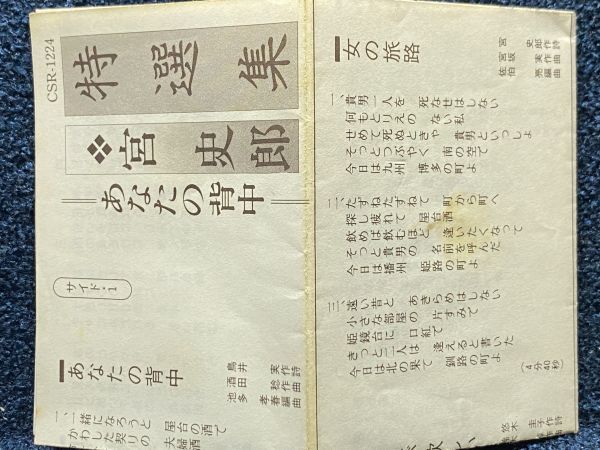 CSR-1224
特選集
❖宮史郎
あなたの背中
サイド・1
あなたの背中
鳥井 実作詩
酒田 稔作曲
池多 孝春編曲
一、一緒になろうと 屋台の酒で
かわした契りの 夫婦酒
女の旅路
宮 史郎作詩
宮坂 実作曲
佐伯 亮編曲
一、貴男一人を 死なせはしない
何もとりえの ない私
せめて死ぬときゃ 貴男といっしょ
そっとつぶやく 南の空で
今日は九州 博多の町よ
二、たずねたずねて 町から町へ
探し疲れて 屋台酒
飲めば飲むほど 逢いたくなって
そっと貴男の 名前を呼んだ
今日は播州 姫路の町よ
三、遠い昔と あきらめはしない
小さな部屋の 片すみで
姫鏡台に 口紅で
きっと二人は 逢えると書いた
今日は北の果て 釧路の町よ
(4分40秒)
悠木 圭子作詩